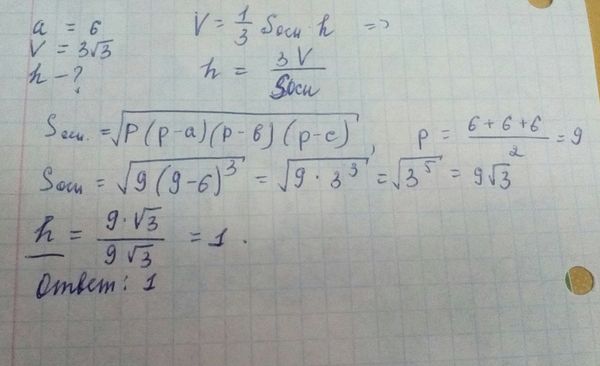 a = 6
V = 1/3 Sосн · h =>
V = 3√3
h - ?
h = 3V / Sосн
Sосн. = √(p(p-a)(p-в)(p-c)), p = (6+6+6)/2 = 9
Sосн = √(9(9-6)³) = √(9·3³) = √(3⁵) = 9√3
h = 9·√3 / 9√3 = 1.
Ответ: 1